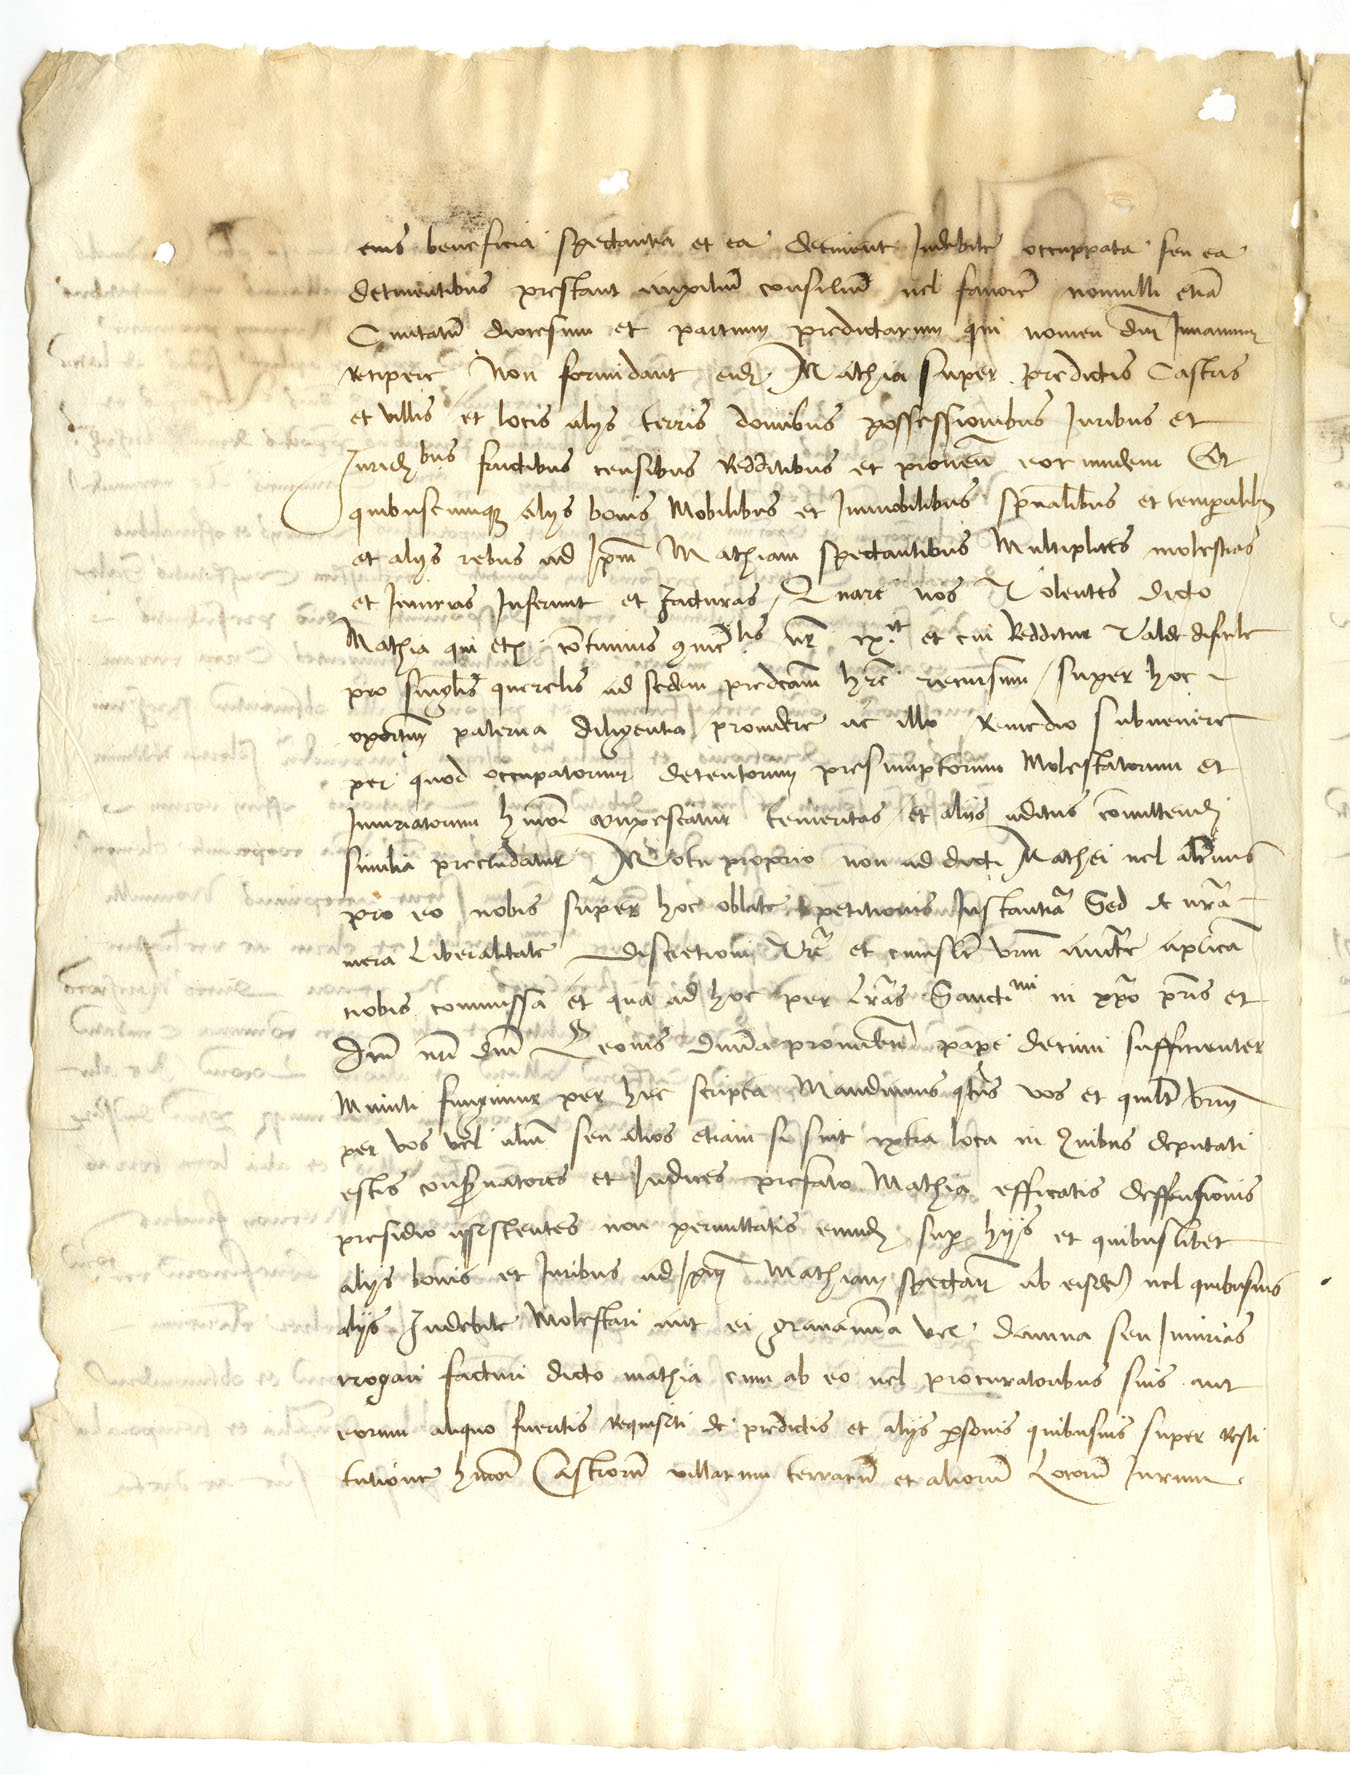 eius beneficia spectantia et ea detinent Indebite occuppata seu ea
detinentibus prestant auxiliũ consiliũ vel favorẽ nonnulli etiã
Civitatũ diocesum et partium predictarum qui nomen dñi Invanum
recipere Non formidant eidẽ Mathia super predictis Castris
et villis et locis alijs terris domibus possessionibus Iuribus et
Iuridbus fructibus censibus Redditibus et provẽn eorumdem Et
quibuscumq3 alijs bonis Mobilibus et Immobilibus spũalibus et temporalibus
et alijs rebus ad Ipm Mathiam spectantibus Multiplices molestias
et Iniurias Inferunt et Iacturas / Quare nos Volentes dicto
Mathia qui et cõtinuus est et cui Redditur Valde dificile
pro singlis querelis ad sedem predcam hrẽ recursum / super hoc
oportuñ paterna diligentia providere ac illo Remedio subvenire
per quod occupatorum detentorum presumptorum Molestatorum et
Iniuriatorum hmõi compescatur temeritas et alijs aditus cõmittendi
similia precludatur Motu proprio non ad dicti Mathei vel alterius
pro eo nobis super hoc oblate petitionis Instantiã Sed de nrã
mera Liberalitate discretioni Vrẽ et cuiuslt vrm auctẽ aplica
nobis commissa et qua ad hoc per lrãs Sanctimi in xpõ pris et
dñi nri dñi Leonis divina providẽn pape decimi sufficienter
Muniti fungimur per hec scripta Mandamus qtus vos et quilt vrm
per vos vel aliũ seu alios etiam si sint extra loca in Quibus deputati
estis conservatores et Iudices prefato Mathia efficatis deffensionis
presidio assistentes non permittatis eumdẽ sup hijs et quibuslibet
alijs bonis et Iuribus ad Ipm Mathiam spectan ab eisdẽ vel quibusvis
alijs Indebite Molestari aut ei gravamina vel damna seu Iniurias
irrogari facturi dicto mathia cum ab eo vel procuratoribus suis aut
eorum aliquo fueritis requisiti de predictis et alijs psonis quibusvis super resti
tutione hmõi Castrorũ villarum terrarũ et aliorũ Locorũ Iurium